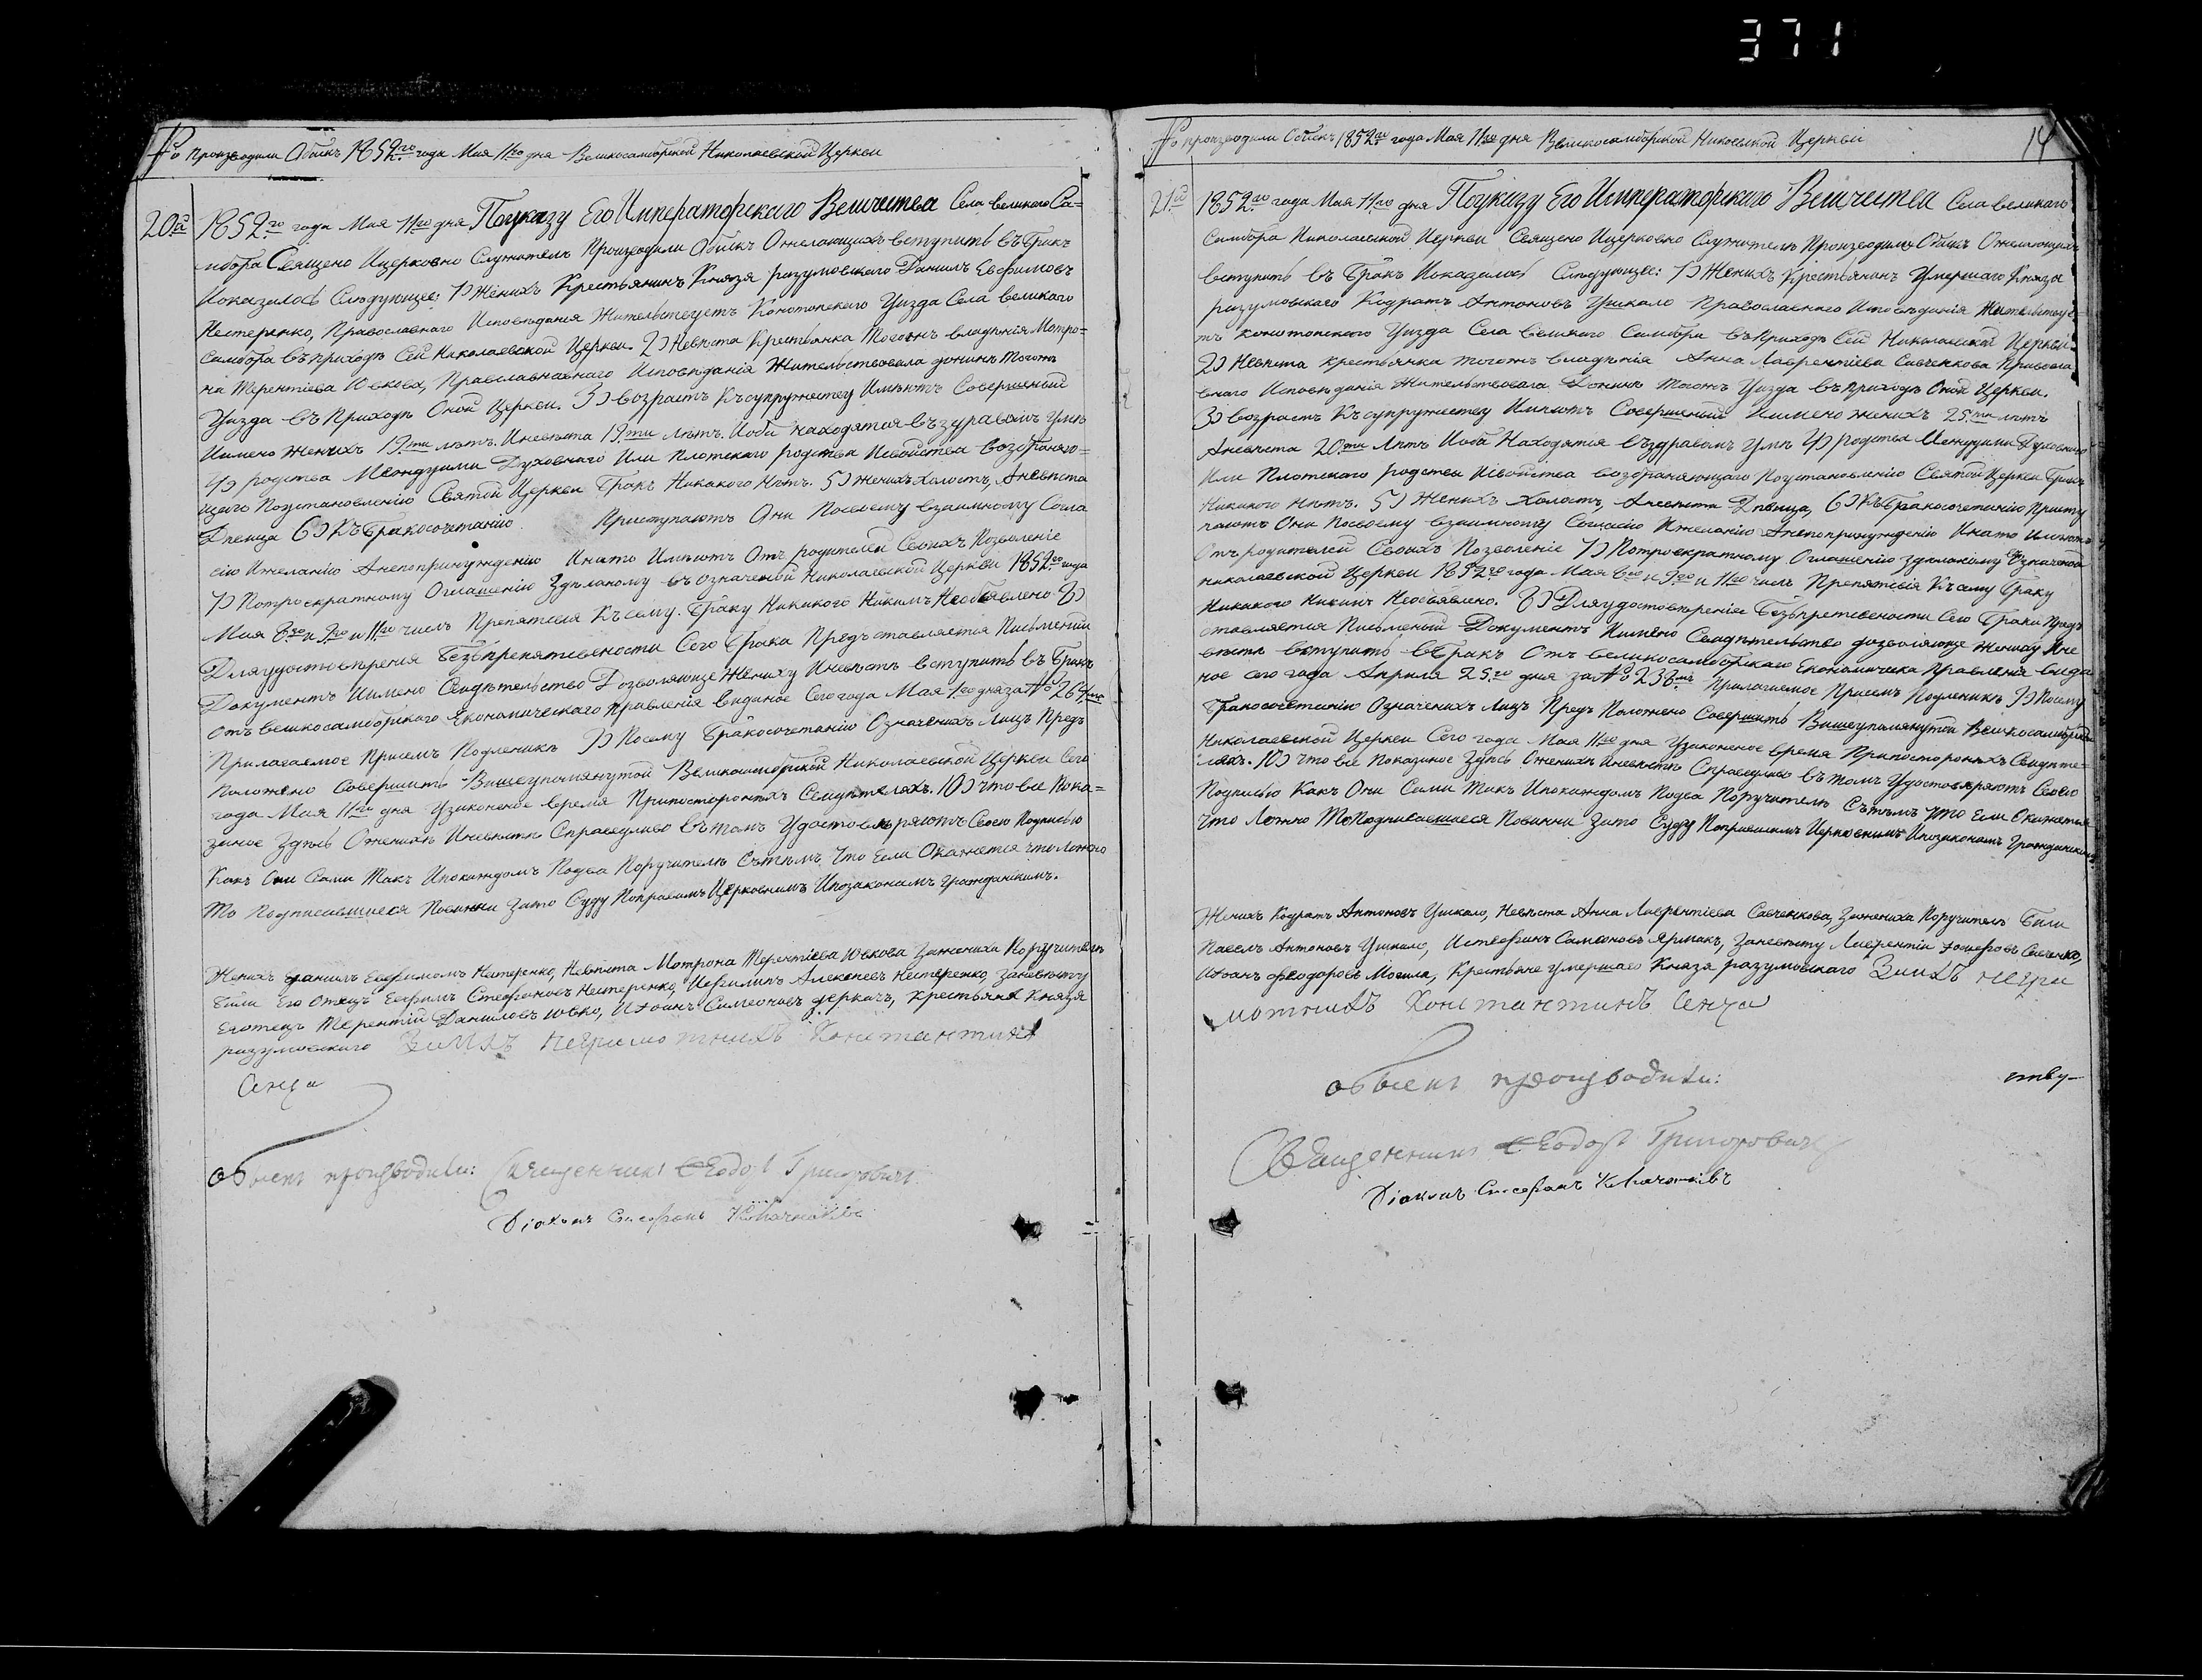 371
№ Производили Обыскъ 1852го года Мая 11го дня Великосамборской Николаевской Церкви
20й 1852го года Мая 11го дня Поуказу Его Императорскаго Величества Села великого Са=
мбора Священо Ицерковно Служители Производили Обыскъ Ожелающихъ вступить въ Бракъ
Иоказалось Слюдующее: 1) Женихъ Крестьянинъ Князя разумовского Данилъ Евфимовъ
Нестеренко, Православнаго Исповѣдания Жительствуетъ Конотопского Уизда Села великого
Самбора въ приходѣ Сей Николаевской Церкви. 2) Невѣста Крестьянка Тогожъ владѣния Мотро=
на Терентіева Ювкова, Православнаго Исповѣданія Жительствовала донинѣ Тогожъ
Уизда въ Приходѣ Оной Церкви. 3) возрастъ Къ супружеству Имѣютъ Совершеный
Иимено Женихъ 19ти лѣтъ. Иневѣста 19ти лѣтъ. Иоба находятся въ здравомъ умѣ
4) родства Междуими Духовнаго Или плотскаго родства Исвойства возбраняю=
щаго Поустановленію Святой Церкви Бракъ Никакого Нѣтъ. 5) женихъ холостъ, Аневѣста
Дѣвица 6) Къ Бракосочетанію Приступаютъ Они Посвоему взаимному Согла
сію Ижеланію Анепопринужденію Инато Имѣютъ Отъ родителей Своихъ Позволеніе
7) Потроекратному Оглашенію Здѣланому въ Означеной Николаевской Церкви 1852го года
Мая 8го и 9го и 11го числъ Препятсвия Къ сему Браку Никакого Никимъ Необъявлено 8)
Для удостовѣрения Безъпрепятсвености Сего Брака Предъставляется Письменій
Документъ Иимено Свидѣтельство Дозволяюще Жениху Иневѣстѣ вступить въ Бракъ
отъ великосамборского Економического правленія виданое Сего года Мая 1го дня за № 264мъ
Прилагаемое Присемъ Подленикъ 9) Посему Бракосочетанію Означенихъ Лицъ Предъ
положено Совершить Вишеупомянутой Великосамборской Николаевской Церкви Сего
года Мая 11го дня Узаконеное время Припосторонихъ Свидѣтеляхъ. 10) что все Пока=
заное Здѣсь Оженихѣ Иневѣстѣ Справедливо въ томъ Удостовѣряютъ Своею Подписью
Какъ Они Сами Такъ Ипокаждомъ Подва Поручителѣ Съ тѣмъ что Если Окажется что ложно
То Подписавшиеся Повинни зато Суду Поправамъ Церковнимъ Ипозаконамъ гражданскимъ.
Женихъ Данилъ Евфимовъ Нестеренко, Невѣста Мотрона Терентіева Ювкова Зажениха Поручители
Били Его Отецъ Евфимъ Стефановъ Нестеренко, Алексеевъ Нестеренко, Заневѣсту
Еготецъ Терентій Даниловъ Ювко, Иоанъ Симеоновъ деркачъ, Крестьяне Князя
разумовского Заихъ неграмотнихъ Константинъ
Сенча
обыскъ производили: Священникъ Ѳеодоръ Григоровичъ
Діаконъ Стефанъ
№ производили Обыскъ 1852го года Мая 11го дня Великосамборской Николаевской Церкви 14
21й 1852го года Мая 11го дня Поуказу Его Императорскаго Величества Села великаго
Самбора Николаевской Церкви Священо Ицерковно Служители Производили Обыскъ Ожелающихъ
вступить въ Бракъ Иоказалось Слюдующее: 1) Женихъ Крестьянинъ Умершаго Князя
разумовскаго Кодратъ Антоновъ Ушкало Православнаго Исповѣданія Жительствуе
тъ конотопского Уизда Села великого Самбора въ приходѣ Сей Николаевской Церкви
2) Невѣста Крестьянка тогожъ владѣния Анна Лаврентіева Савченкова Правосла
внаго Исповѣданія Жительствовала Донинѣ Тогожъ Уизда въ приходѣ Оной Церкви.
3) возрастъ Къ супружеству Имѣютъ Совершеный Иимено женихъ 25ти лѣтъ
Аневѣста 20ти Лѣтъ Иоба Находятся въ здравомъ умѣ 4) родства Междуими Духовнаго
Или Плотскаго родства Исвойства возбраняющаго Поустановленію Святой Церкви Бракъ
Никакого нѣтъ. 5) Женихъ холостъ, Аневѣста Дѣвица, 6) Къ Бракосочетанію Присту
паютъ Они Посвоему взаимному Согласію Ижеланію Анепопринужденію Инато Имѣютъ
Отъ родителей Своихъ Позволеніе 7) Потроекратному Оглашенію зделаному Означеной
николаевской Церкви 1852го года Мая 8го и 9го и 11го числъ Препятсвія Къ сему Браку
Никакого Никимъ Необъявлено. 8) Для удостовѣреніе Безъпретсвености Сего Брака Предъ
ставляется Письменый Документъ Иимено Свидѣтельство дозволяюще жениху Ине
вѣстѣ вступить въ Бракъ Отъ великосамборскаго Економическа правленя вида
ное сего года Априля 25го дня за № 238мъ Прилагаемое Присемъ Подленикъ 9) Посему
Бракосочетанію Означенихъ Лицъ Предъ Положено Совершить Вишеупомянутой Великосамборской
Николаевской Церкви Сего года Мая 11го дня Узаконеное время Припосторонихъ Свидѣте=
ляхъ. 10) что все Показаное Здѣсь Оженихѣ Иневѣстѣ Справедливо въ томъ Удостовѣряютъ Своею
Подписью Какъ Они Сами Такъ Ипокаждомъ Подва Поручителѣ Съ тѣмъ что Если Окажется
Что Ложно То Подписавшиеся Повинни Зато Суду Поправамъ Церковнимъ Ипозаконамъ Гражданскимъ
Женихъ Кодратъ Антоновъ Ушкало, Невѣста Анна Лаврентіева Савченкова, Зажениха Поручители Били
Павелъ Антоновъ Ушкало, Истефанъ Самсоновъ Ярмакъ, Заневѣсту Лаврентій Савченко,
Иоанъ феодоровъ Могила, Крестьяне умершаго Князя разумовскаго Заихъ негра
мотнихъ Константинъ Сенча
обыскъ производили:
Священникъ Ѳеодоръ Григоровичъ
Діаконъ Стефанъ